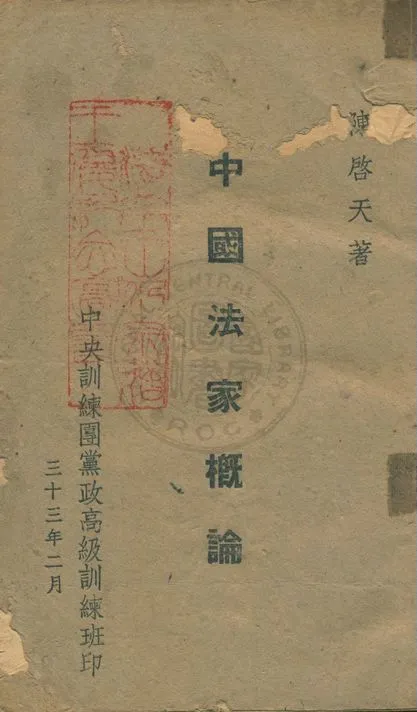 陳啓天著
中國法家概論
中央訓練團黨政高級訓練班印
三十三年二月
CENTRAL LIBRARY
R O C